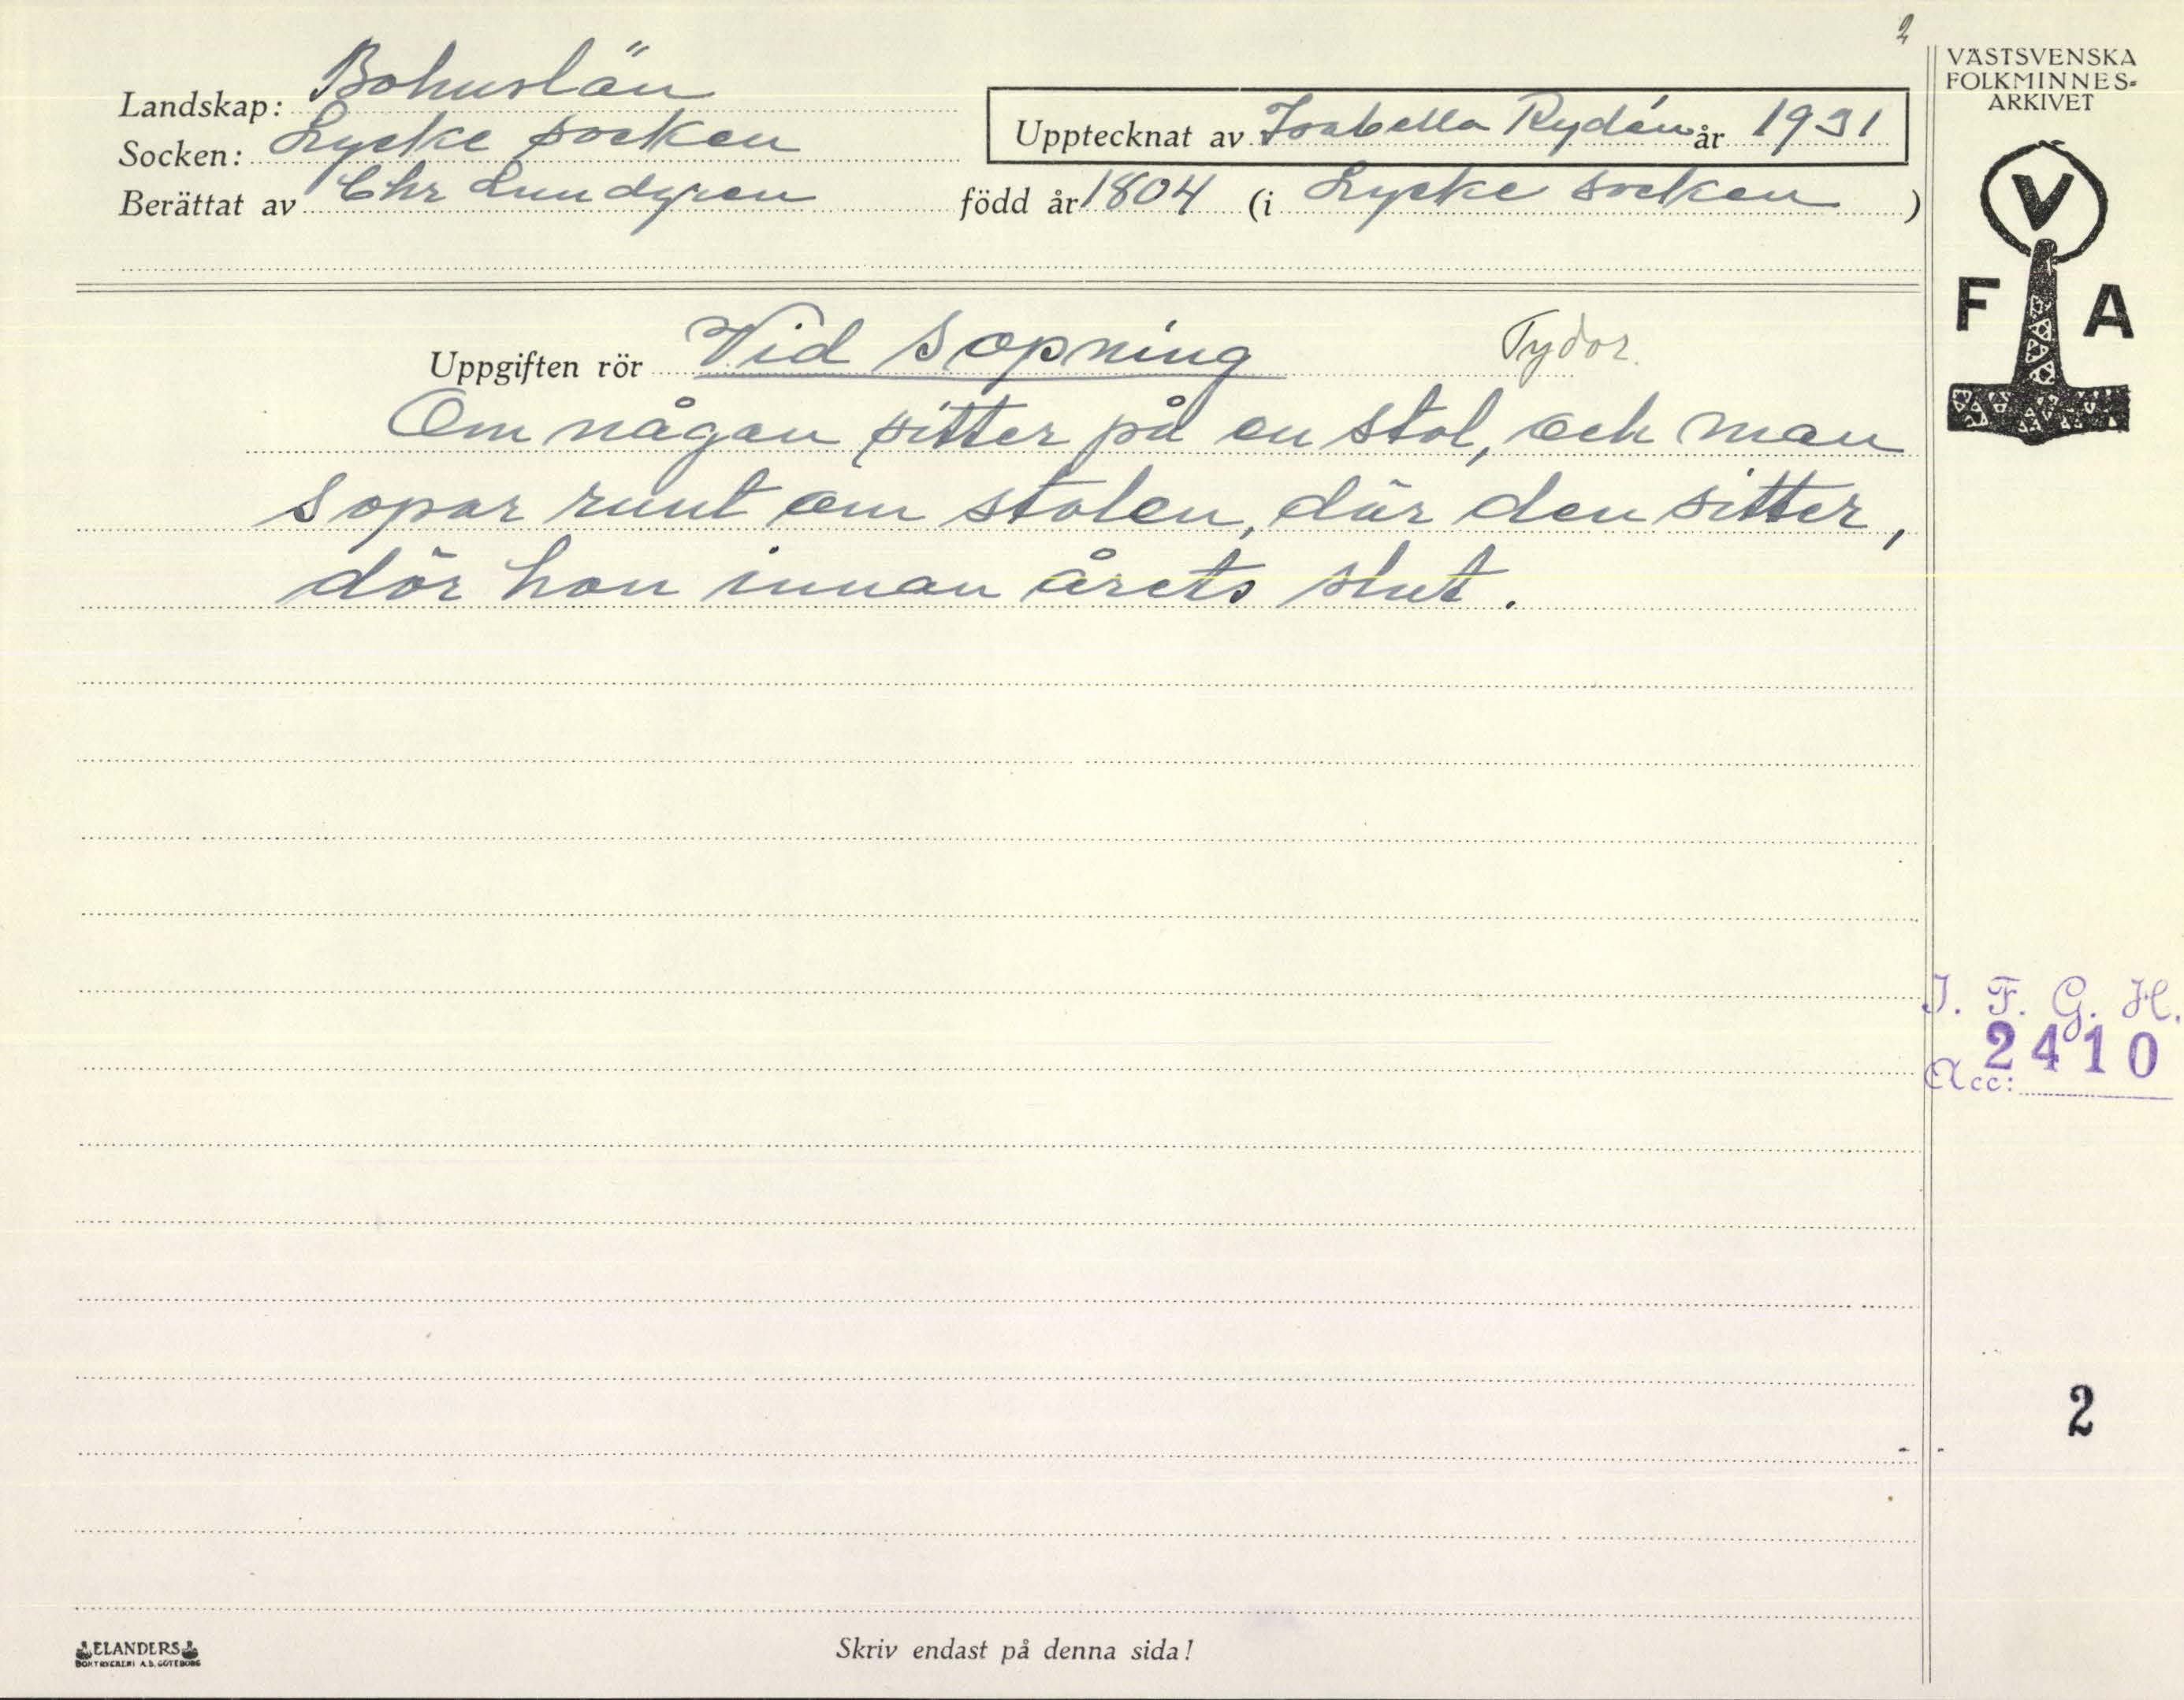 2
VÄSTSVENSKA
FOLKMINNES-
ARKIVET
Landskap: Bohuslän
Socken: Lycke socken
Upptecknat av Isabella Rydén år 1931
Berättat av Chr Lundgren född år 1804 (i Lycke socken)
V
F A
Uppgiften rör Vid Sopning Tydor.
Om någon sitter på en stol, och man
sopar runt om stolen, där den sitter,
dör hon innan årets slut.
I. F. G. H.
2410
Acc:
2
ELANDERS
BOKTRYCKERI A.B. GÖTEBORG
Skriv endast på denna sida!